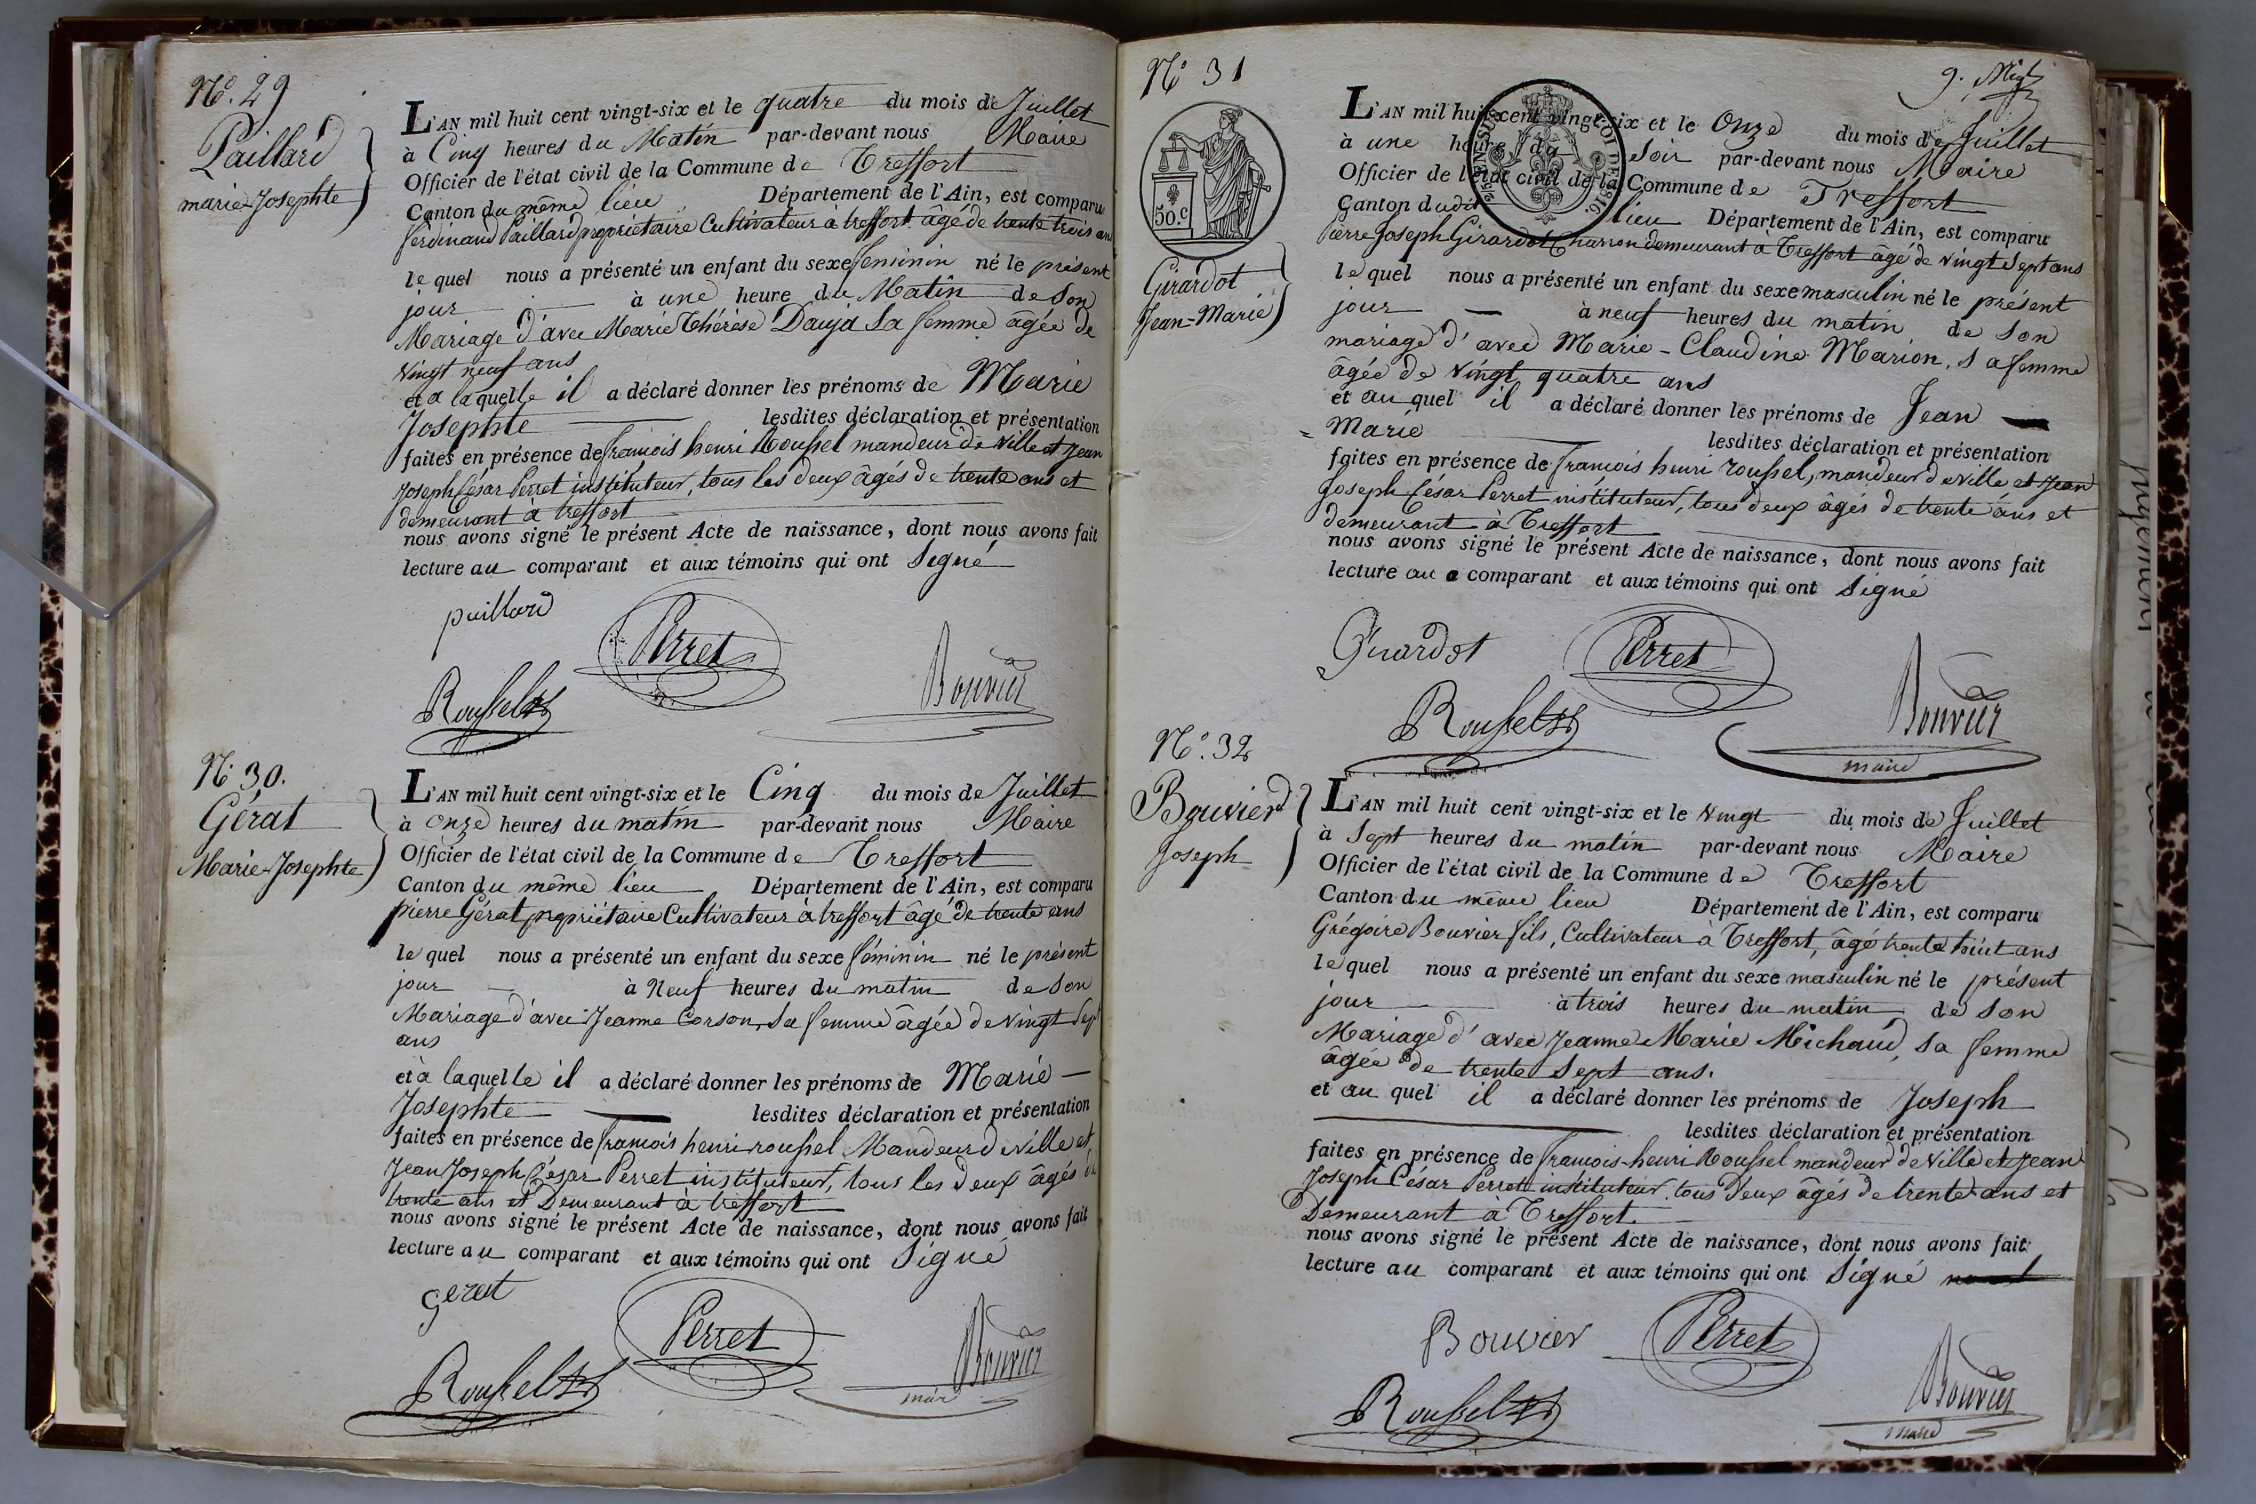 N.° 29
Paillard
marie-Josephte
L'AN mil huit cent vingt-six et le quatre du mois de Juillet
à Cinq heures du Matin par-devant nous Maire
Officier de l'état civil de la Commune de Treffort
Canton du même lieu Département de l'Ain, est comparu
ferdinand Paillard propriétaire Cultivateur à treffort agé de trente trois ans
le quel nous a présenté un enfant du sexe feminin né le présent
jour à une heure du Matin de Son
Mariage d'avec Marie Thérèse Sa femme âgée de
Vingt neuf ans
et a laquelle il a déclaré donner les prénoms de Marie
Josephte lesdites déclaration et présentation
faites en présence de françois henri Roussel mandeur de Ville et Jean
Joseph César Perret instituteur, tous les deux âgés de trente ans et
demeurant à treffort
nous avons signé le présent Acte de naissance, dont nous avons fait
lecture au comparant et aux témoins qui ont Signé
paillard
Perret
Roussel
Bouvier
N.° 30.
Gérat
Marie-Josephte
L'AN mil huit cent vingt-six et le Cinq du mois de Juillet
à onze heures du matin par-devant nous Maire
Officier de l'état civil de la Commune de Treffort
Canton du même lieu Département de l'Ain, est comparu
pierre Gérat propriétaire Cultivateur à treffort âgé de trente ans
le quel nous a présenté un enfant du sexe féminin né le présent
jour à Neuf heures du matin de Son
Mariage d'avec Jeanne Corson, Sa femme âgée de Vingt Sept
ans
et à laquelle il a déclaré donner les prénoms de Marie
Josephte lesdites déclaration et présentation
faites en présence de francois henri roussel Mandeur de Ville et
Jean Joseph César Perret instituteur, tous les deux âgés de
trente ans et Demeurant à treffort
nous avons signé le présent Acte de naissance, dont nous avons fait
lecture au comparant et aux témoins qui ont Signé
gerat
Perret
Roussel
Bouvier
maire
N.° 31
9.
50.C
Girardot
Jean-Marie
L'AN mil huit cent vingt-six et le Onze du mois de Juillet
à une heure du Soir par-devant nous Maire
Officier de l'état civil de la Commune de Treffort
Canton dudit lieu Département de l'Ain, est comparu
Pierre Joseph Girardot Charron demeurant à Treffort âgé de vingt Sept ans
le quel nous a présenté un enfant du sexe masculin né le présent
jour à neuf heures du matin de Son
mariage d'avec Marie-Claudine Marion, Sa femme
âgée de vingt quatre ans
et au quel il a déclaré donner les prénoms de Jean
Marie lesdites déclaration et présentation
faites en présence de francois henri roussel, mandeur de Ville et Jean
Joseph César Perret instituteur, tous deux âgés de trente ans et
demeurant à Treffort
nous avons signé le présent Acte de naissance, dont nous avons fait
lecture au comparant et aux témoins qui ont Signé
Girardot
Perret
Roussel
Bouvier
maire
N.° 32
Bouvier
Joseph
L'AN mil huit cent vingt-six et le Vingt du mois de Juillet
à Sept heures du matin par-devant nous Maire
Officier de l'état civil de la Commune de Treffort
Canton du même lieu Département de l'Ain, est comparu
Grégoire Bouvier fils, Cultivateur à Treffort, âgé trente huit ans
le quel nous a présenté un enfant du sexe masculin né le présent
jour à trois heures du matin de Son
Mariage d'avec Jeanne Marie Michaud, Sa femme
âgée de trente Sept ans.
et au quel il a déclaré donner les prénoms de Joseph
lesdites déclaration et présentation
faites en présence de francois-henri Roussel mandeur de Ville et Jean
Joseph César Perret instituteur, tous deux âgés de trente ans et
Demeurant a Treffort.
nous avons signé le présent Acte de naissance, dont nous avons fait
lecture au comparant et aux témoins qui ont Signé
Bouvier
Perret
Roussel
Bouvier
maire